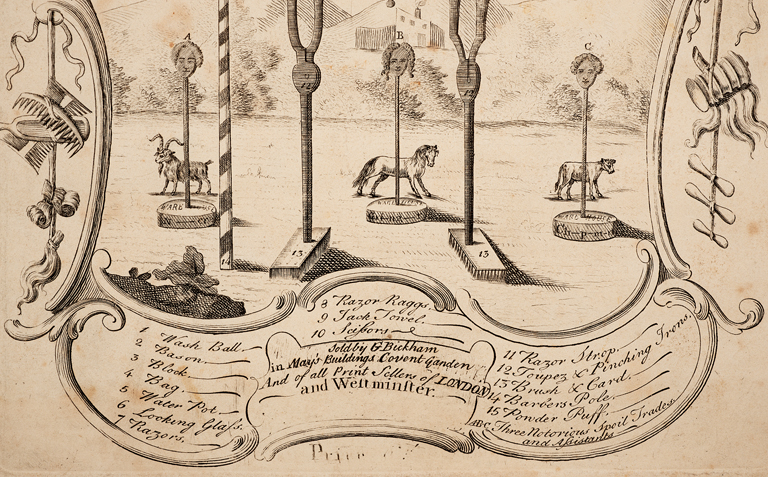 A
B
C
12
12
13
13
1 Wash Ball
2 Bason
3 Block
4 Bag
5 Water Pot
6 Looking Glass.
7 Razors.
8 Razor Raggs.
9 Jack Towel
10 Scissors
Sold by G Bickham
in May's Buildings Covent Garden
And of all Print Sellers of LONDON
and Westminster.
11 Razor Strop.
12 Toupez & Pinching Irons.
13 Brush & Card.
14 Barbers Pole.
15 Powder Puff.
ABC. Three Notorious Spoil Trades
and Assistants
Price